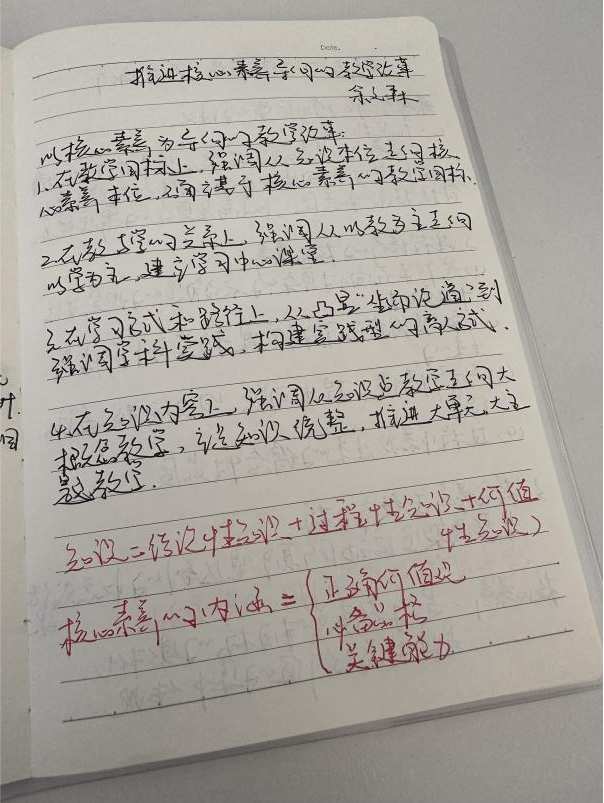 Date.
推进核心素养导向的教学改革
余文森
以核心素养为导向的教学改革:
1.在教学目标上,强调从知识本位走向核
心素养本位,确立基于核心素养的教学目标.
2.在教与学的关系上,强调从以教为主走向
以学为主,建立学习中心课堂
3.在学习方式和路径上,从凸显“坐而论道”到
强调学科实践,构建实践型的育人方式.
4.在知识内容上,强调从知识点教学走向大
概念教学,注意知识统整,推进大单元、大主
题教学.
知识=结论性知识+过程性知识+价值
性知识)
核心素养的内涵={正确价值观
必备品格
关键能力